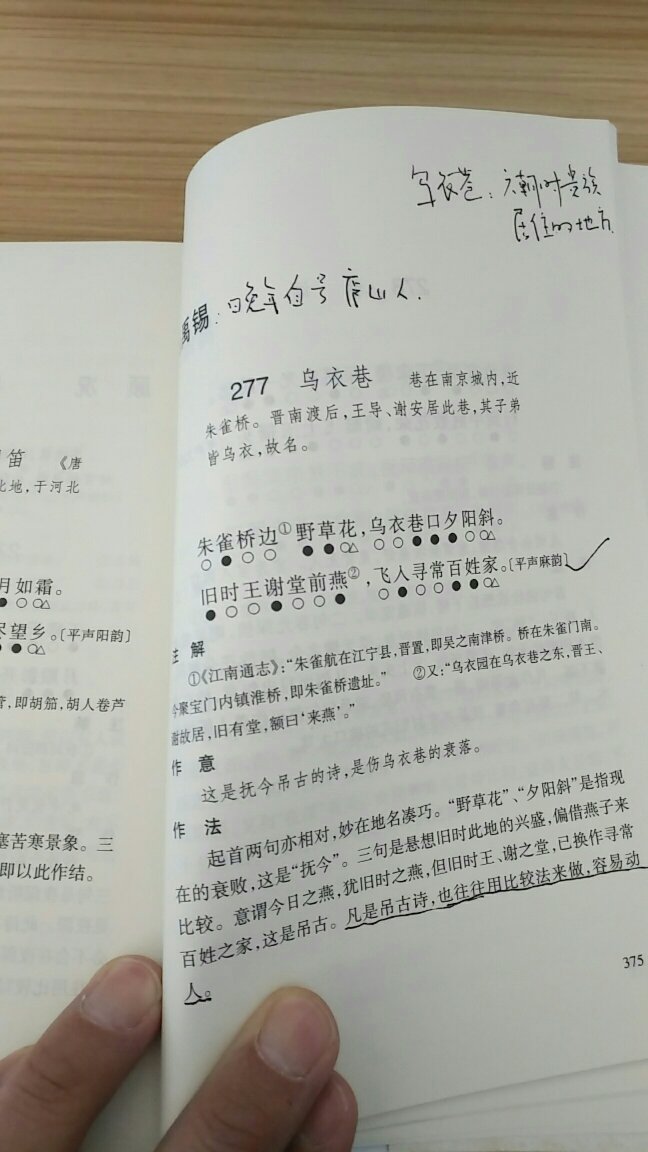 笛 《唐
北地，于河北
月如霜。
尽望乡。〔平声阳韵〕
即胡笳，胡人卷芦
塞苦寒景象。三
即以此作结。
乌衣巷：六朝时贵族
居住的地方.
禹锡：晚年自号庐山人.
277 乌衣巷 巷在南京城内，近
朱雀桥。晋南渡后，王导、谢安居此巷，其子弟
皆乌衣，故名。
朱雀桥边①野草花，乌衣巷口夕阳斜。
旧时王谢堂前燕②，飞人寻常百姓家。〔平声麻韵〕
注 解
①《江南通志》：“朱雀航在江宁县，晋置，即吴之南津桥。桥在朱雀门南。
今聚宝门内镇淮桥，即朱雀桥遗址。” ②又：“乌衣园在乌衣巷之东，晋王、
谢故居，旧有堂，额曰‘来燕’。”
作 意
这是抚今吊古的诗，是伤乌衣巷的衰落。
作 法
起首两句亦相对，妙在地名凑巧。“野草花”、“夕阳斜”是指现
在的衰败，这是“抚今”。三句是悬想旧时此地的兴盛，偏借燕子来
比较。意谓今日之燕，犹旧时之燕，但旧时王、谢之堂，已换作寻常
百姓之家，这是吊古。凡是吊古诗，也往往用比较法来做，容易动
人。
375